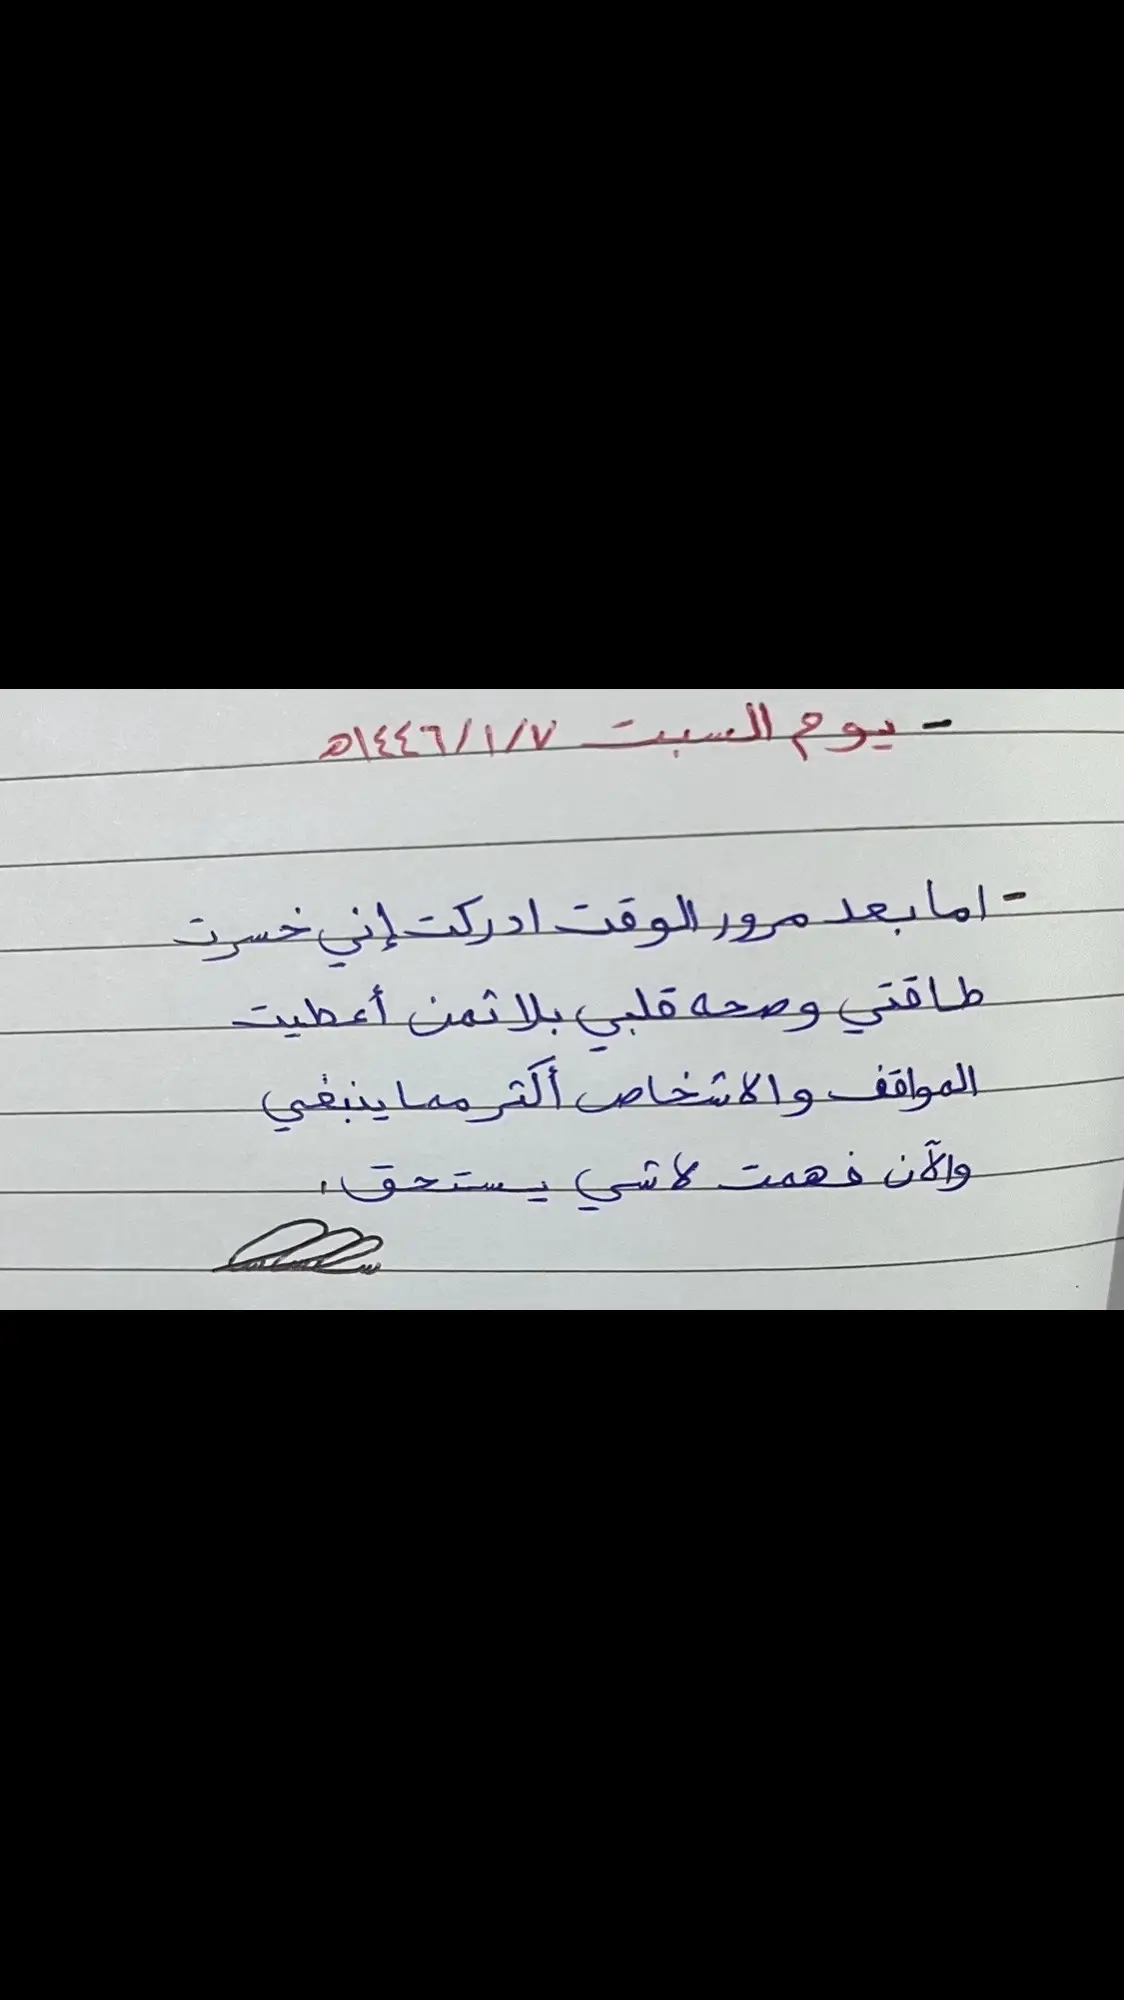 - يوم السبت ١٤٤٦/١/٧هـ
- اما بعد مرور الوقت ادركت إني خسرت
طاقتي وصحه قلبي بلا ثمن أعطيت
المواقف والاشخاص أكثر مما ينبغي
والآن فهمت لاشي يستحق.